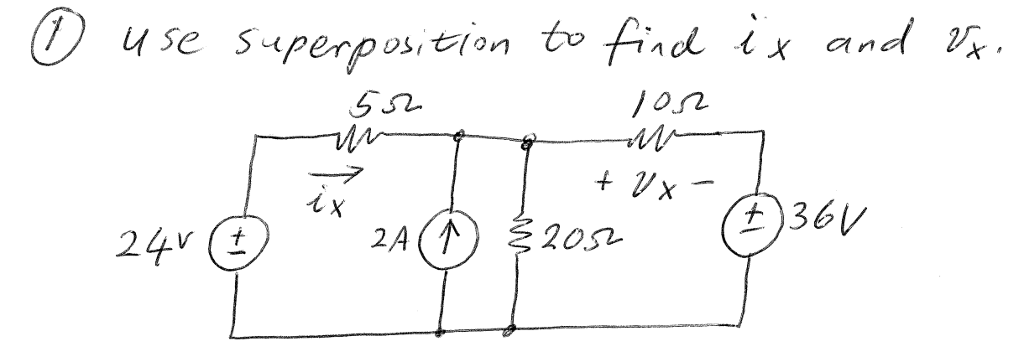 ① use superposition to find ix and vx.
5Ω
10Ω
ix
+ vx -
24V
+
-
2A
20Ω
+
-
36V